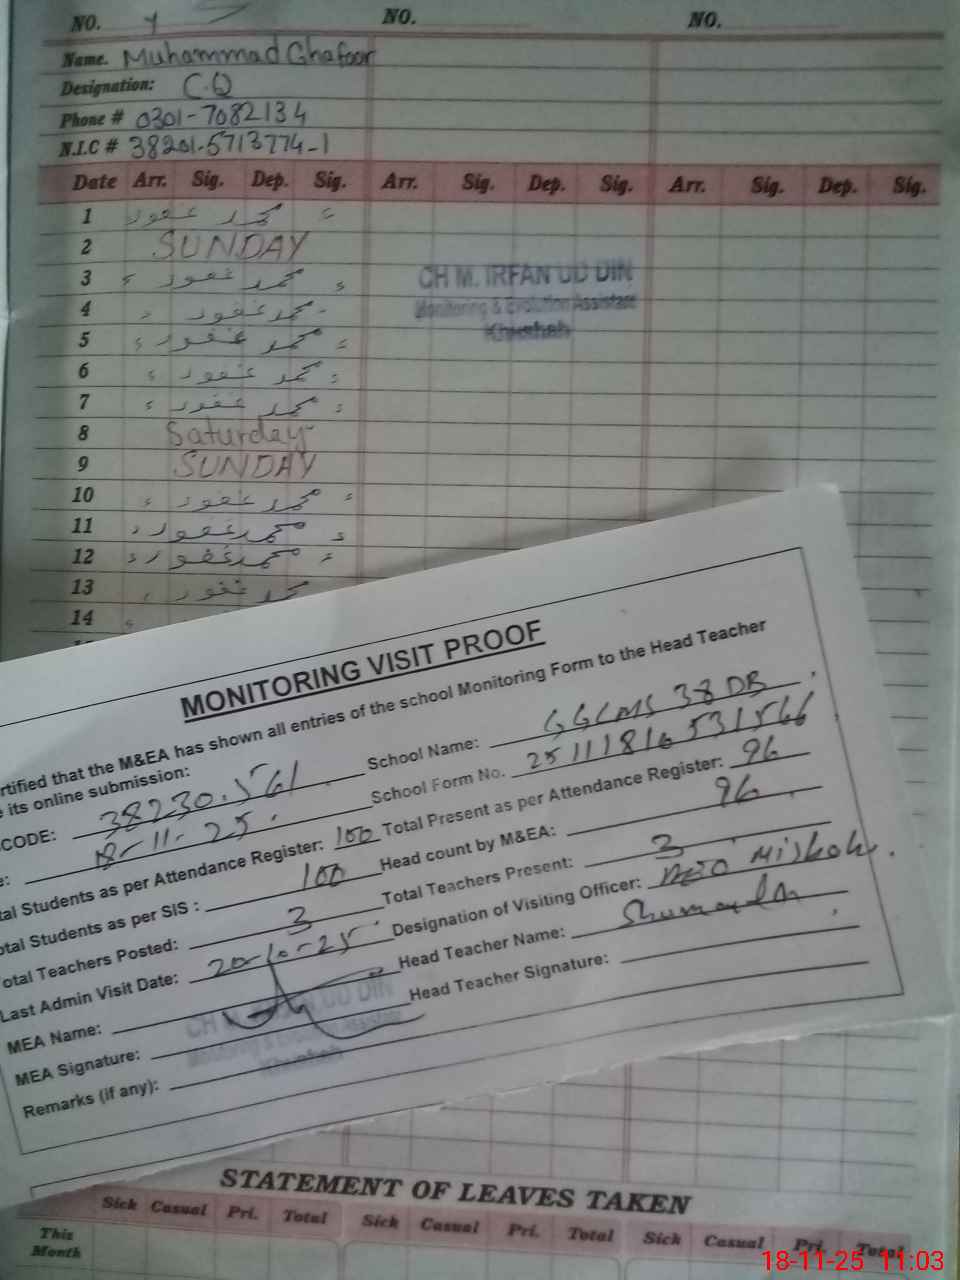 NO. NO. NO.
Name. Muhammad Ghafoor
Designation: C.Q
Phone # 0301-7082134
N.I.C # 38201-5713774-1
Date Arr. Sig. Dep. Sig. Arr. Sig. Dep. Sig. Arr. Sig. Dep. Sig.
1 محمد غفور
2 SUNDAY
3 محمد غفور
CH M. IRFAN UD DIN
4 محمد غفور
Monitoring & Evolution Assistant
5 محمد غفور
6 محمد غفور
7 محمد غفور
8 Saturday
9 SUNDAY
10 محمد غفور
11 محمد غفور
12 محمد غفور
13 محمد غفور
14
MONITORING VISIT PROOF
rtified that the M&EA has shown all entries of the school Monitoring Form to the Head Teacher
e its online submission:
CODE: 38230561 School Name: GGCMS 38 DB
18-11-25 School Form No. 25111816531566
tal Students as per Attendance Register: 100 Total Present as per Attendance Register: 96
otal Students as per SIS : 100 Head count by M&EA: 96
Total Teachers Posted: 3 Total Teachers Present: 3
Last Admin Visit Date: 20-10-25 Designation of Visiting Officer:
MEA Name: Head Teacher Name:
MEA Signature: Head Teacher Signature:
CH M. IRFAN UD DIN
Monitoring & Evolution Assistant
Remarks (if any):
STATEMENT OF LEAVES TAKEN
Sick Casual Pri. Total Sick Casual Pri. Total Sick Casual Pri. Total
This Month
18-11-25 11:03